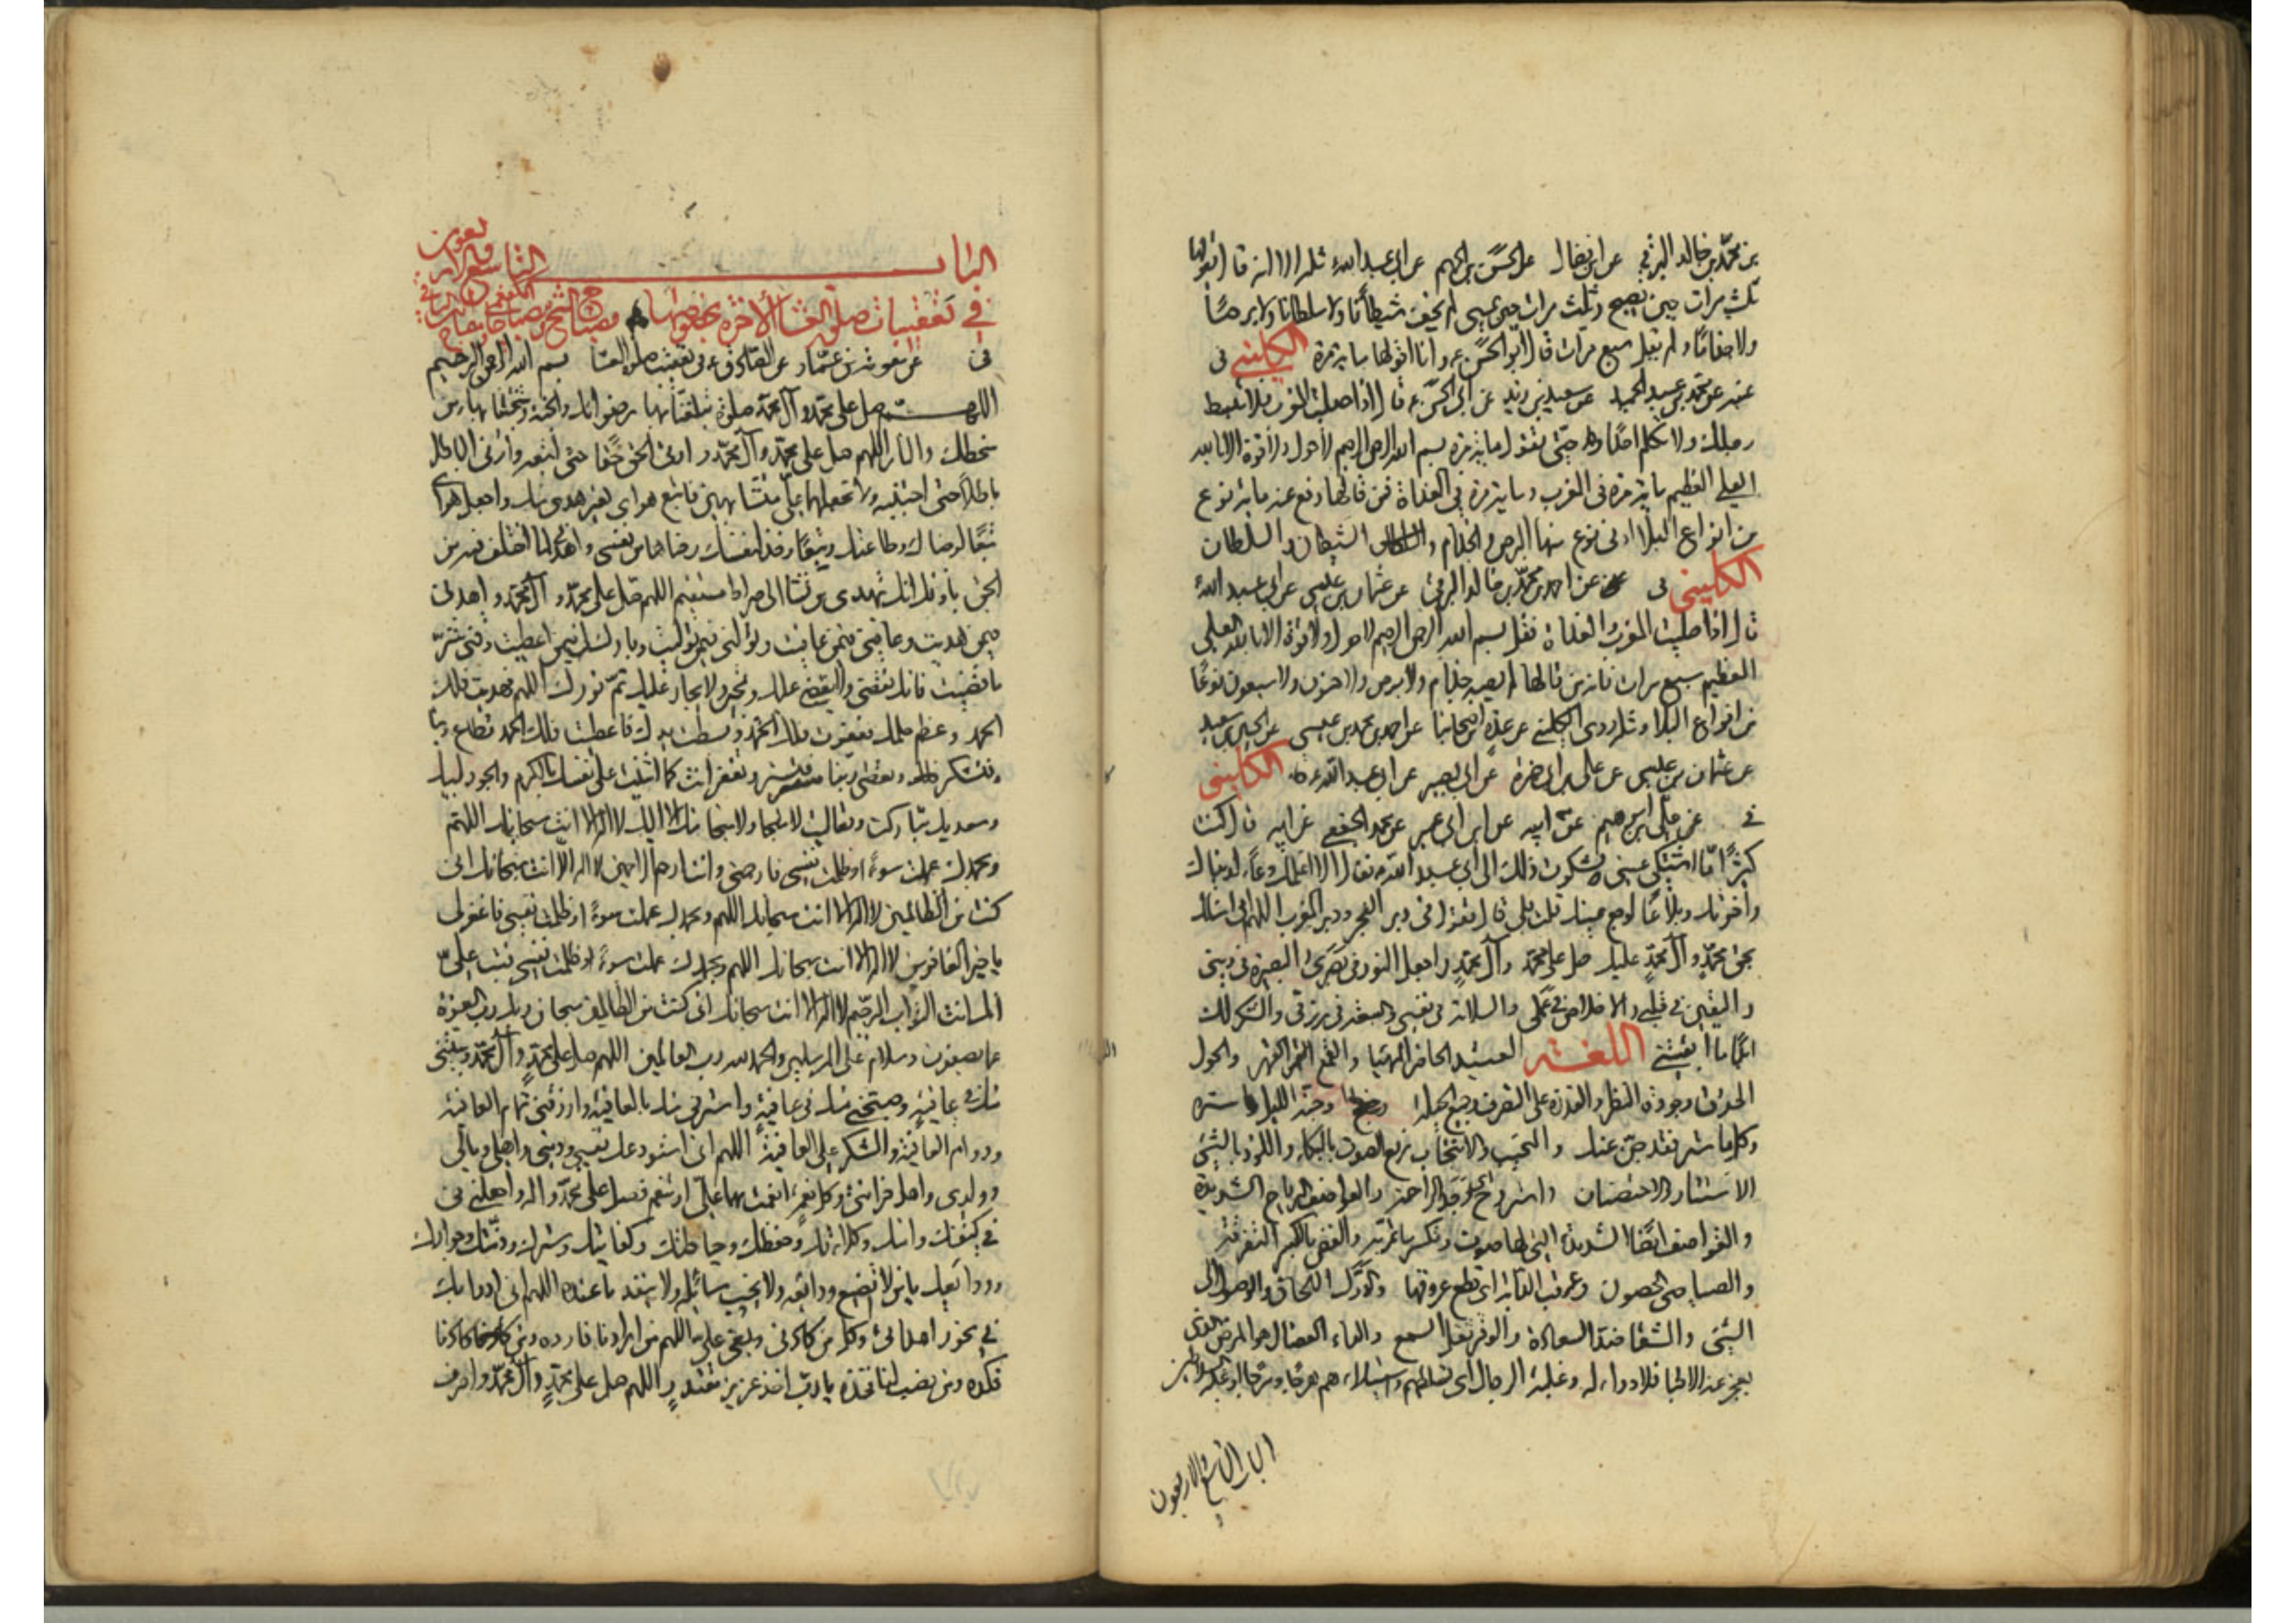 بن محمد بن خالد البرقي عن ابن فضال عن الحسن بن الجهم عن ابي عبد الله مثله الا انه قال يقولها
ثلث مرات حين يصبح وثلث مرات حين يمسي لم يخف شيطانا ولا سلطانا ولا برصا
ولا جذاما ولم يقل سبع مرات قال ابو الحسن ع وانا اقولها مائة مرة الكليني في
عنه عن محمد بن عبد الحميد عن سعيد بن زيد عن ابي الحسن ع قال اذا صليت المغرب فلا تبسط
رجلك ولا تكلم احدا حتى تقول مائة مرة بسم الله الرحمن الرحيم لا حول ولا قوة الا بالله
العلي العظيم مائة مرة في المغرب ومائة مرة في الغداة فمن قالها دفع عنه مائة نوع
من انواع البلاء ادنى نوع منها البرص والجذام والشيطان والسلطان
الكليني في عن احمد بن محمد بن خالد البرقي عن عثمان بن عيسى عن ابي عبد الله
قال اذا صليت المغرب والغداة فقل بسم الله الرحمن الرحيم لا حول ولا قوة الا بالله العلي
العظيم سبع مرات فانه من قالها لم يصبه جذام ولا برص ولا جنون ولا سبعون نوعا
من انواع البلاء ومثله روى الكليني عن عدة من اصحابنا عن احمد بن محمد بن عيسى عن الحسين بن سعيد
عن عثمان بن عيسى عن علي بن ابي حمزة عن ابي بصير عن ابي عبد الله ع الكليني
في عن علي بن ابرهيم عن ابيه عن ابن ابي عمير عن محمد الجعفي عن ابيه قال كنت
كثيرا ما اشتكي عيني فشكوت ذلك الى ابي عبد الله ع فقال الا اعلمك دعاء لدنياك
واخرتك وبلاغا لوجع عينيك قلت بلى قال تقول في دبر الفجر ودبر المغرب اللهم اني اسئلك
بحق محمد وآل محمد عليك صل على محمد وآل محمد واجعل النور في بصري والبصيرة في ديني
واليقين في قلبي والاخلاص في عملي والسلامة في نفسي والسعة في رزقي والشكر لك
ابدا ما ابقيتني اللغة العتيد الحاضر المهيا والقمع القهر والحول
الحذق وجودة النظر والقدرة على التصرف وجنة الليل ستره
وكلما ستر فقد جن عنك والنحيب والانتحاب رفع الصوت بالبكاء واللوذ بالشئ
الاستتار والاحتضان والعواصف الرياح الشديدة
والقواصف ايضا الشديدة التي لها صوت
والصياصي الحصون وعرقب الدابة اي قطع عرقوبها والدرك اللحاق والوصول الى
الشئ والشقا ضد السعادة والوقر ثقل السمع والداء العضال هو المرض الذي
يعجز عنه الاطبا فلا دواء له وغلبة الرجال اي تسلطهم واستيلاءهم
الباب التاسع والاربعون
الباب التاسع والاربعون
في تعقيبات صلوة العشاء الاخرة بخصوصها مصباح الشيخ
في عن معوية بن عمار عن الصادق ع في تعقيب صلوة العشاء بسم الله الرحمن الرحيم
اللهم صل على محمد وآل محمد صلوة تبلغنا بها رضوانك والجنة وتنجينا بها من
سخطك والنار اللهم صل على محمد وآل محمد وارني الحق حقا حتى اتبعه وارني الباطل
باطلا حتى اجتنبه ولا تجعلهما علي متشابهين فاتبع هواي بغير هدى منك واجعل هواي
تبعا لرضاك وطاعتك وخذ لنفسك رضاها من نفسي واهدني لما اختلف فيه من
الحق باذنك انك تهدي من تشاء الى صراط مستقيم اللهم صل على محمد وآل محمد واهدني
فيمن هديت وعافني فيمن عافيت وتولني فيمن توليت وبارك لي فيما اعطيت وقني شر
ما قضيت فانك تقضي ولا يقضى عليك وتجير ولا يجار عليك تم نورك اللهم فهديت فلك
الحمد وعظم حلمك فعفوت فلك الحمد وبسطت يدك فاعطيت فلك الحمد تطاع ربنا
فتشكر وتعصى ربنا فتستر وتغفر انت كما اثنيت على نفسك بالكرم والجود لبيك
وسعديك تباركت وتعاليت لا ملجا ولا منجا منك الا اليك لا اله الا انت سبحانك اللهم
وبحمدك عملت سوءا وظلمت نفسي فارحمني وانت ارحم الراحمين لا اله الا انت سبحانك اني
كنت من الظالمين لا اله الا انت سبحانك اللهم وبحمدك عملت سوءا وظلمت نفسي فاغفر لي
يا خير الغافرين لا اله الا انت سبحانك اللهم وبحمدك عملت سوءا وظلمت نفسي فتب علي
انك انت التواب الرحيم لا اله الا انت سبحانك اني كنت من الظالمين سبحان ربك رب العزة
عما يصفون وسلام على المرسلين والحمد لله رب العالمين اللهم صل على محمد وآل محمد وبيتني
منك في عافية وصبحني منك في عافية واسترني منك بالعافية وارزقني تمام العافية
ودوام العافية والشكر على العافية اللهم اني استودعك نفسي وديني واهلي ومالي
وولدي واهل حزانتي وكل نعمة انعمت بها علي او تنعم فصل على محمد واله واجعلني في
في كنفك وامنك وكلائتك وحفظك وحياطتك وكفايتك وسترك وذمتك وجوارك
وودائعك يا من لا تضيع ودائعه ولا يخيب سائله ولا ينفد ما عنده اللهم اني ادرأ بك
في نحور اعدائي وكل من كادني وبغى علي اللهم من ارادنا فارده ومن كادنا
فكده ومن نصب لنا فخذه يا رب اخذ عزيز مقتدر اللهم صل على محمد وآل محمد واصرف